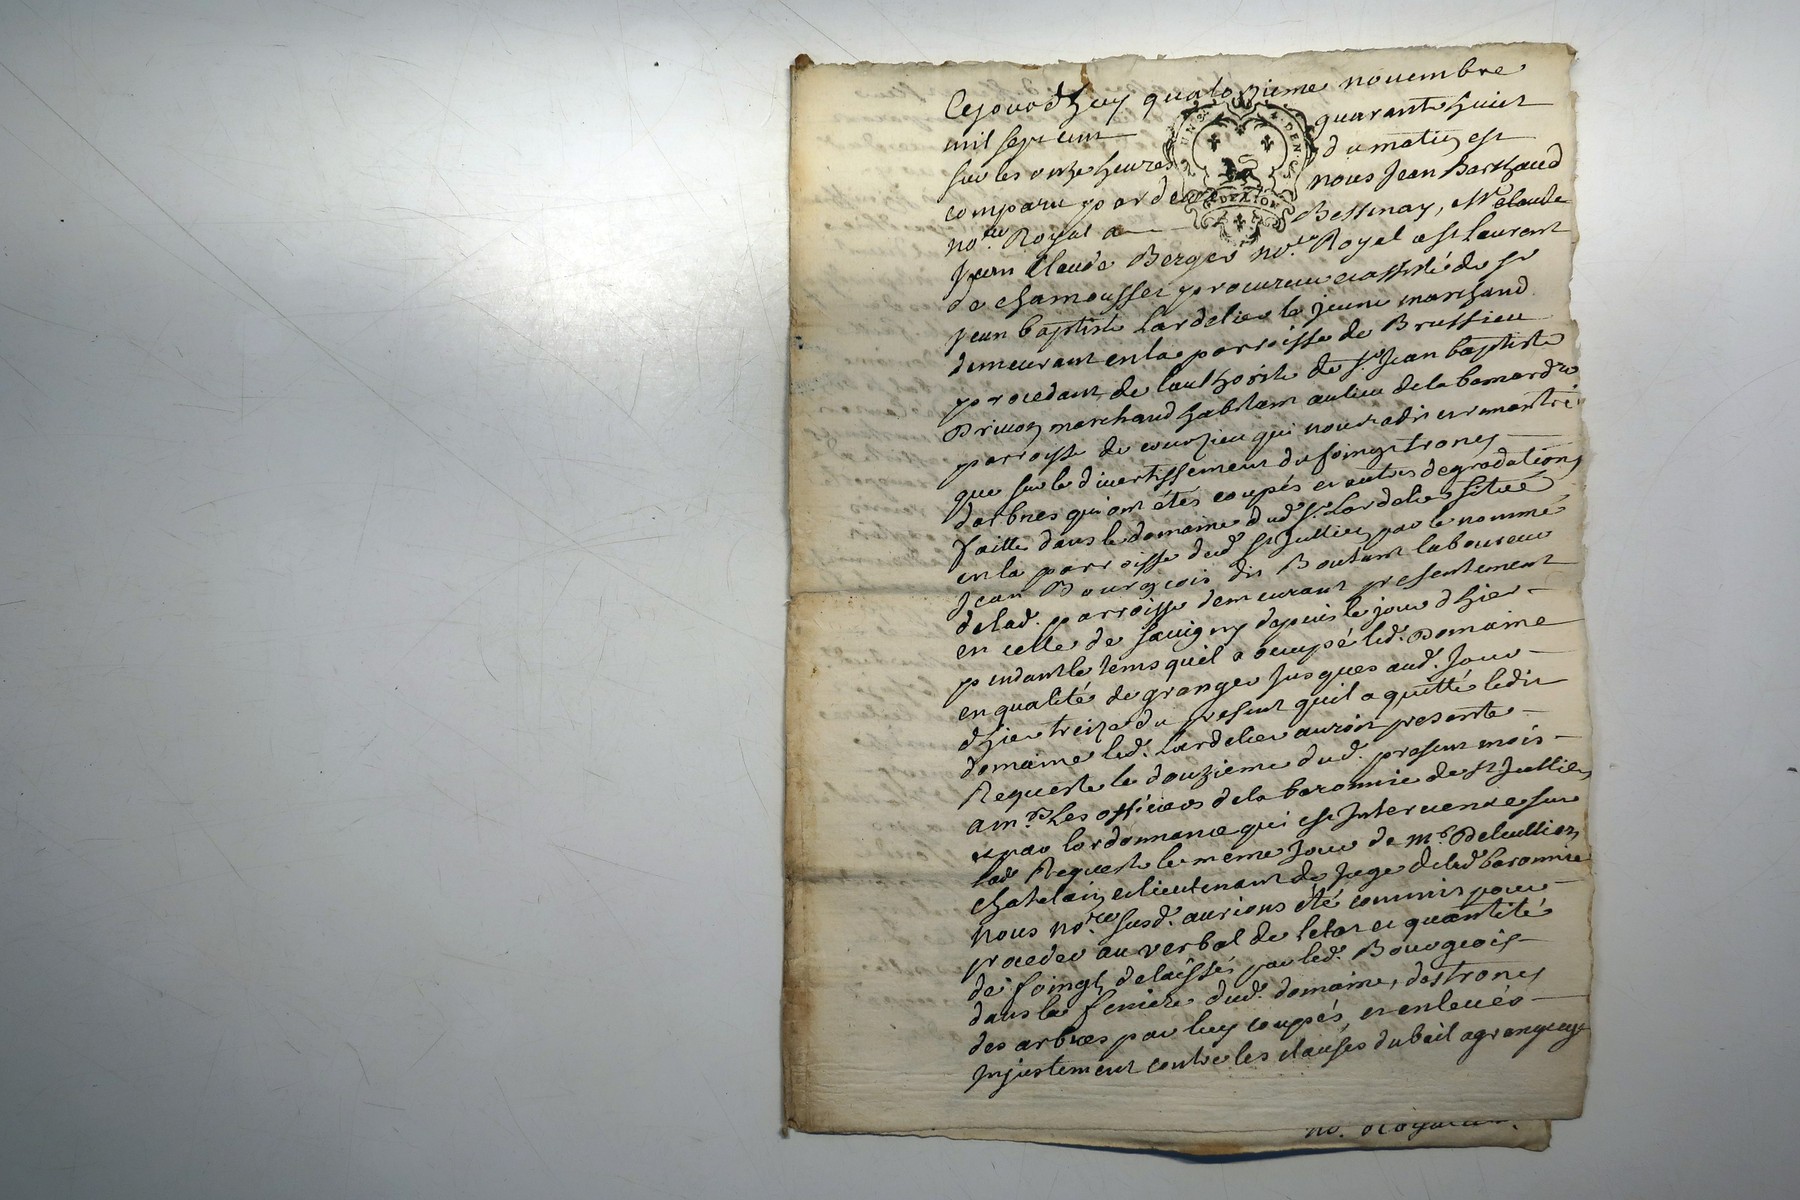 Cejourd'huy quatorzieme novembre
mil sept cent quarante huict
sur les onze heures du matin est
comparu par devant nous Jean Barthaud
no.re Royal a Bessenay, Mr claude
Jean Claude Berger no.re Royal a st Laurent
de chamousset procureur et assisté de sr
Jean baptiste Lardelier le jeune marchand
demeurant en la parroisse de Brussieu
procedant de l'authorité de sr Jean baptiste
marchand habitant au lieu de la
parroisse de courzieu qui nous a dit et remontré
que sur le divertissement du foings troncs
d'arbres qui ont étés coupés et autres degradations
faitte dans le domaine dud. sr Lardelier situé
en la parroisse dud. st Jullien par le nommé
Jean Bourgeois dit Boutant laboureur
de lad. parroisse demeurant presentement
en celle de savigny depuis le jour d'hier
pendant le tems quil a occupé led. Domaine
en qualité de granger Jusques aud. Jour
d'hier treize du present quil a quitté ledit
domaine led. Lardelier auroit presenté
Requeste le douzieme dud. present mois
a mrs Les officiers de la baronnie de st Jullien
et par l'ordonnance qui est Intervenue sur
lad. Requeste le meme Jour de Mr.
chatelain et lieutenant de Juge de lad. baronnie
nous no.re susd. aurions été commis pour
proceder au verbal de letat et quantité
de foingt delaissés par led. Bourgeois
dans la feniere dud. domaine, des troncs
des arbres par luy coupés, et enlevés
Injustement contre les clauses du bail a grangeage
no. Royal